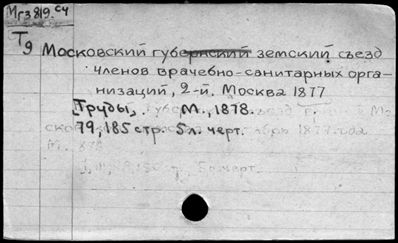 Мгз 819.С4
Т9 Московский губернский земский съезд
членов врачебно-санитарных орга-
низаций, 2-й. Москва 1877
[Труды]. М., 1878.
79, 185 стр. 5 л. черт.